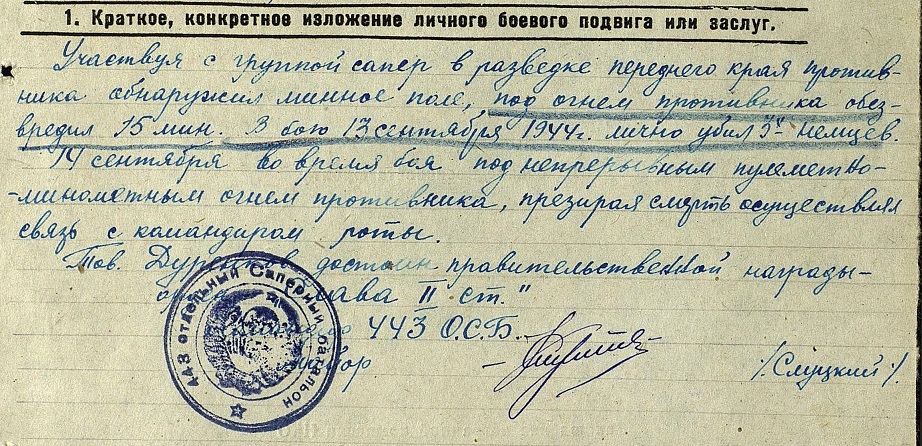 1. Краткое, конкретное изложение личного боевого подвига или заслуг.
Участвуя с группой сапер в разведке переднего края против-
ника обнаружил минное поле, под огнем противника обез-
вредил 15 мин. В бою 13 сентября 1944г. лично убил 3х немцев.
14 сентября во время боя под непрерывным пулеметно-
-минометным огнем противника, презирая смерть осуществлял
связь с командиром роты.
Тов. достоин правительственной награды-
II ст."
443 О.С.Б.
/Слуцкий/.
443 отдельный Саперный батальон